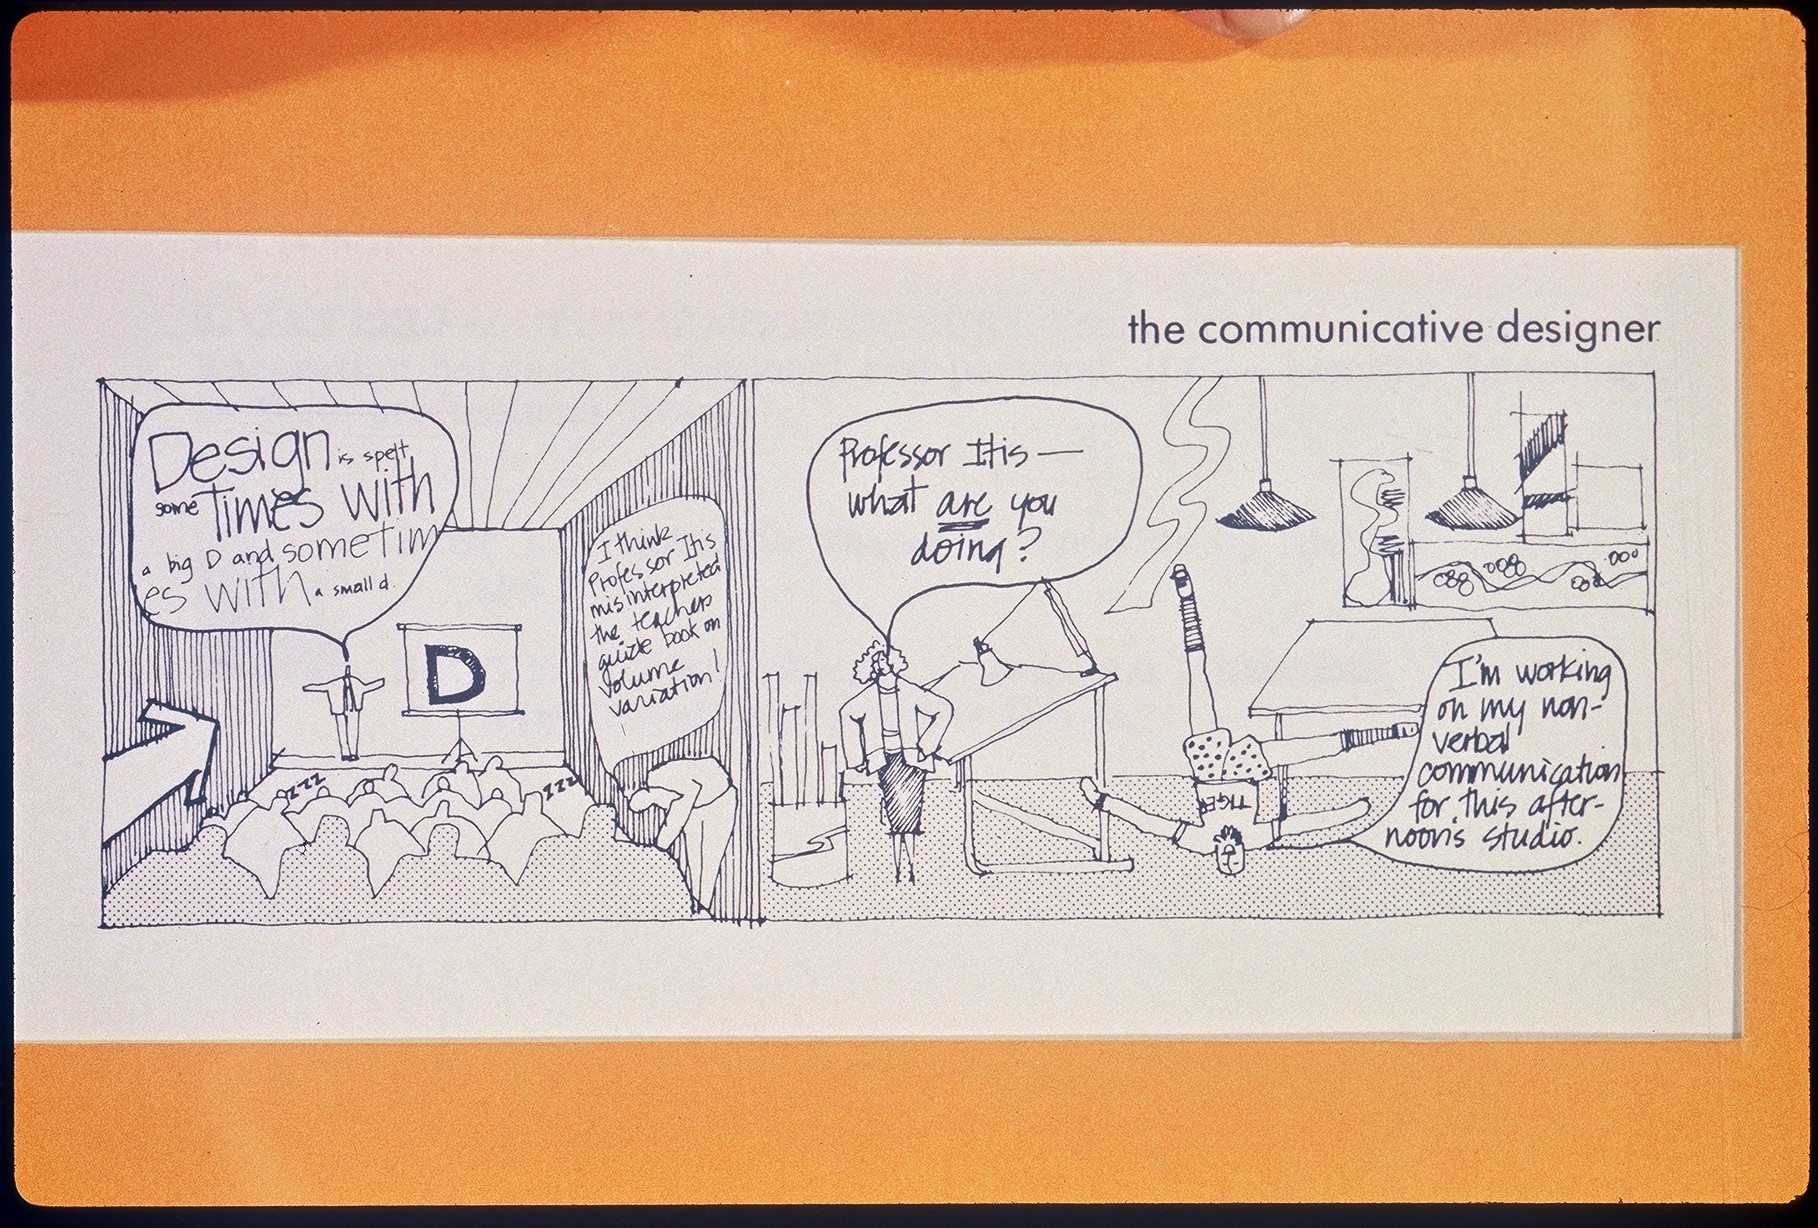 the communicative designer
Design is spelt
sometimes with
a big D and sometim
es with a small d.
D
zzz
zzz
I think
Professor Itis
misinterpreted
the teachers
guide book on
volume
variation!
Professor Itis —
what are you
doing?
TIGER
I'm working
on my non-
verbal
communication
for this after-
noon's studio.